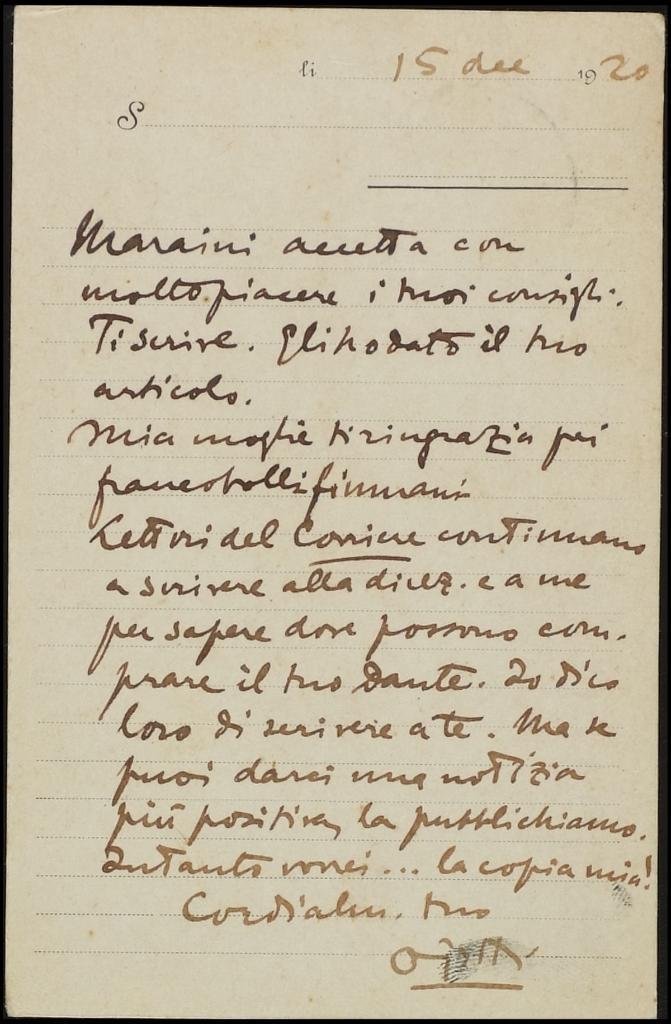 li 15 dec 1920
S
Maraini accetta con
molto piacere i tuoi consigli.
Ti scrive. Gli ho dato il tuo
articolo.
Mia moglie ti ringrazia pei
francobolli fiumani
Lettori del Corriere continuano
a scrivere alla direz. e a me
per sapere dove possono com-
prare il tuo Dante. Io dico
loro di scrivere a te. Ma se
puoi darci una notizia
più positiva, la pubblichiamo.
Intanto vorrei... la copia mia!
Cordialm. tuo